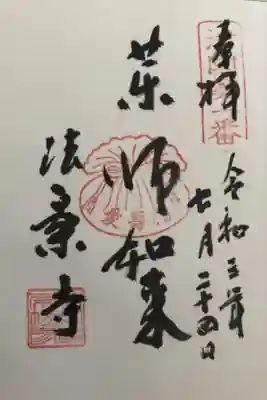 奉拝
令和三年
七月二十四日
薬師如来
法案寺